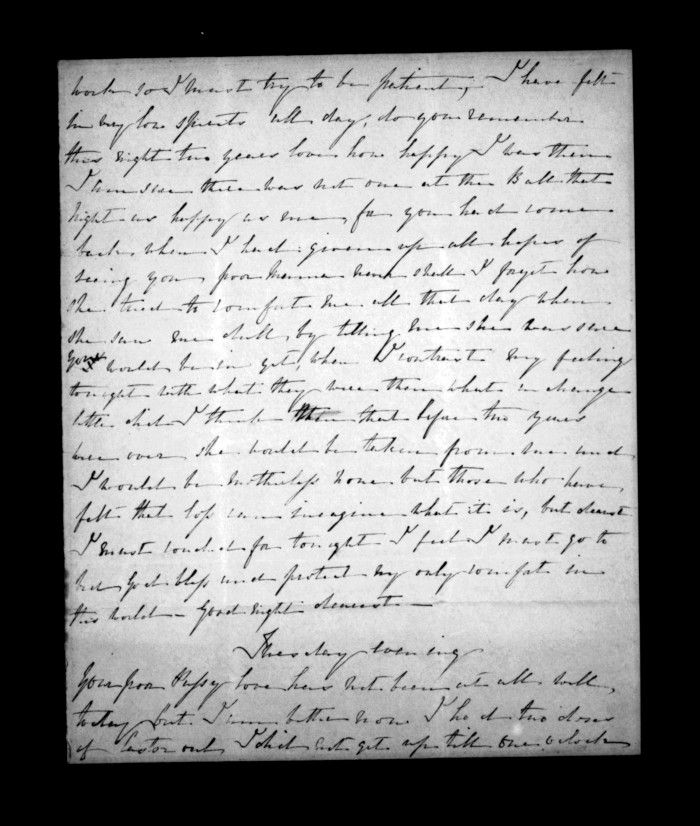 work so I must try to be patient, I have felt
in very low spirits all day, do you remember
this night two years love how happy I was then
I am sure there was not one at the Ball that
night as happy as me, for you had come
back when I had given up all hopes of
seeing you, poor Mamma never shall I forget how
she tried to comfort me all that day when
she saw me dull, by telling me she was sure
you would be in yet, when I contrast my feeling
tonight with what they were then what a change
little did I think that before two years
were over she would be taken from me and
I would be motherless none but those who have
felt that loss can imagine what it is, but dearest
I must conclude for tonight I feel I must go to
bed God bless and protect my only comfort in
this world — Good night dearest —
Tuesday evening
Your poor Pussy love has not been at all well
today but I am better now I had two doses
of Castor oil I did not get up till one o'clock